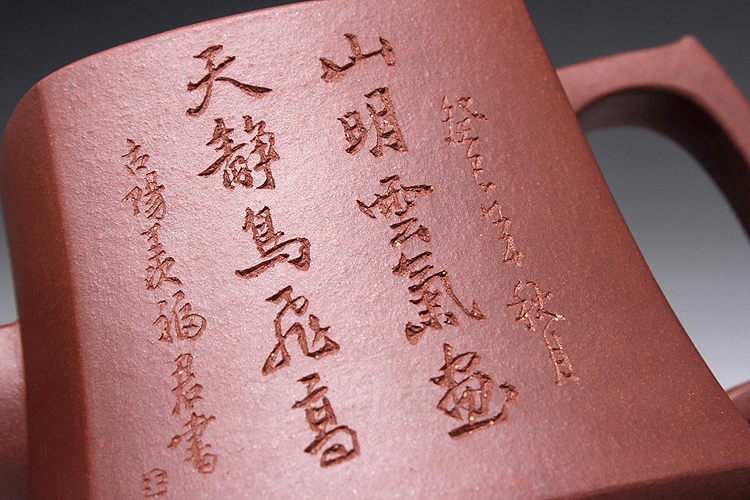 癸巳年秋月
山明雲氣畫
天靜鳥飛高
古陽羡福君書